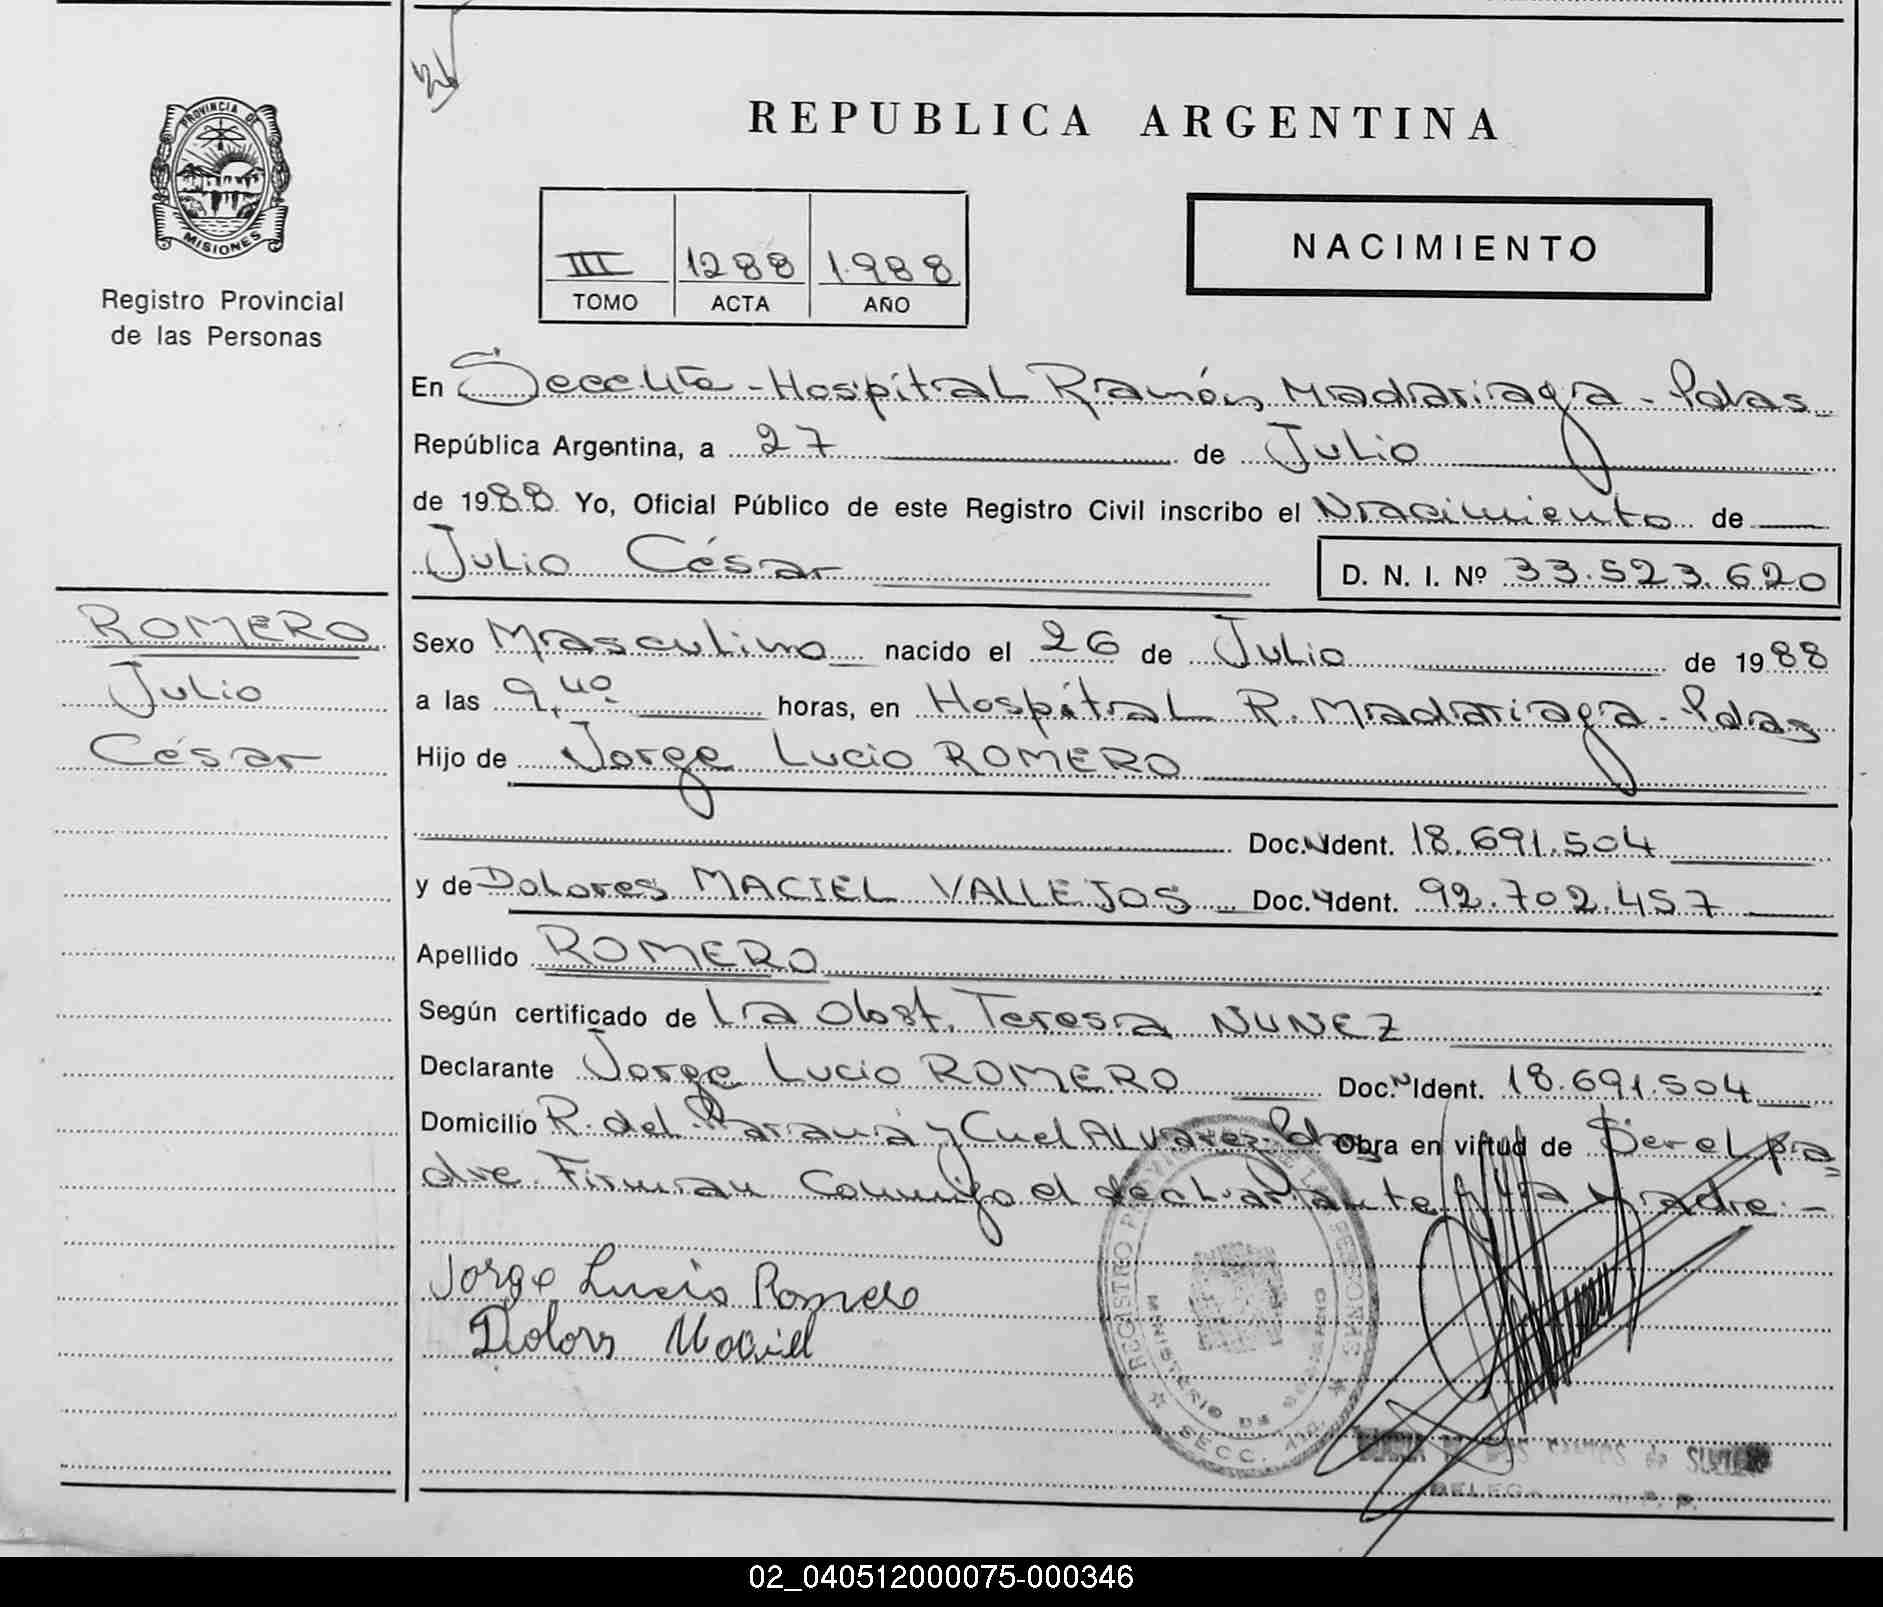 PROVINCIA DE
MISIONES
Registro Provincial
de las Personas
ROMERO
Julio
César
REPUBLICA ARGENTINA
III 1288 1988
TOMO ACTA AÑO
NACIMIENTO
En Secc. Hospital Ramón Madariaga - Pdas
República Argentina, a 27 de Julio
de 1988 Yo, Oficial Público de este Registro Civil inscribo el Nacimiento de
Julio César
D. N. I. Nº 33.523.620
Sexo Masculino nacido el 26 de Julio de 1988
a las 9,40 horas, en Hospital R. Madariaga - Pdas
Hijo de Jorge Lucio ROMERO
Doc. Ident. 18.691.504
y de Dolores MACIEL VALLEJOS Doc. Ident. 92.702.457
Apellido ROMERO
Según certificado de La Obst. Teresa NUNEZ
Declarante Jorge Lucio ROMERO Doc. Ident. 18.691.504
Domicilio R. del Paraná y Cnel Alvarez - Pdas Obra en virtud de Ser el pa=
dre. Firman Conmigo el declarante y la Madre. -
Jorge Lucio Romero
Dolors Maciel
REGISTRO PROVINCIAL DE LAS PERSONAS
MINISTERIO DE GOBIERNO
SECC.
02_040512000075-000346